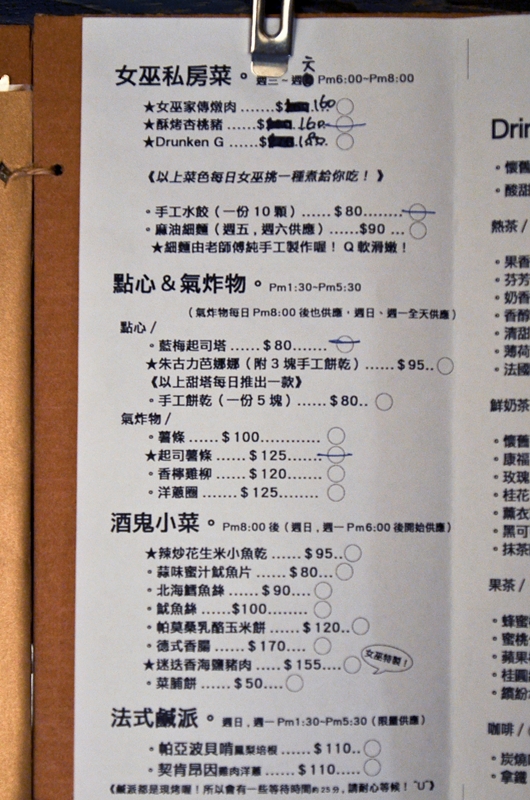 女巫私房菜。週三~週六 Pm6:00~Pm8:00
★女巫家傳燉肉 .......$160
★酥烤杏桃豬 ......$160
★Drunken G ......$180
《以上菜色每日女巫挑一種煮給你吃！》
◦手工水餃（一份 10 顆）......$80........
◦麻油細麵（週五，週六供應）......$90 ...
★細麵由老師傅純手工製作喔！Q 軟滑嫩！
點心 & 氣炸物。Pm1:30~Pm5:30
（氣炸物每日 Pm8:00 後也供應，週日、週一全天供應）
點心 /
◦藍梅起司塔 ......$80.......
★朱古力芭娜娜（附 3 塊手工餅乾）......$95..
《以上甜塔每日推出一款》
◦手工餅乾（一份 5 塊）......$80..
氣炸物 /
◦薯條 ......$100.............
★起司薯條 ......$125.......
◦香檸雞柳 ......$120.......
◦洋蔥圈 ......$125........
酒鬼小菜。Pm8:00 後（週日，週一 Pm6:00 後開始供應）
★辣炒花生米小魚乾 ......$95..
◦蒜味蜜汁魷魚片 ......$80...
◦北海鱈魚絲 ......$90....
◦魷魚絲 ......$100........
◦帕莫桑乳酪玉米餅 ......$120..
◦德式香腸 ......$170....
★迷迭香海鹽豬肉 ......$155....
女巫特製！
◦菜脯餅 ......$50....
法式鹹派。週日，週一 Pm1:30~Pm5:30（限量供應）
◦帕亞波貝啃鳳梨培根 ......$110..
◦契肯昂因雞肉洋蔥 ......$110.....
《鹹派都是現烤喔！所以會有一些等待時間約25分，請耐心等候！ˇUˇ》
Drin
◦懷舊
◦酸甜
熱茶 /
◦果香
◦芬芳
◦奶香
◦香醇
◦清甜
◦薄荷
◦法國
鮮奶茶
◦懷舊
◦康福
◦玫瑰
◦桂花
◦薰衣
◦黑可
◦抹茶
果茶 /
◦蜂蜜
◦蜂蜜
◦蘋果
◦桂圓
◦繽紛
咖啡 /
◦炭燒
◦拿鐵